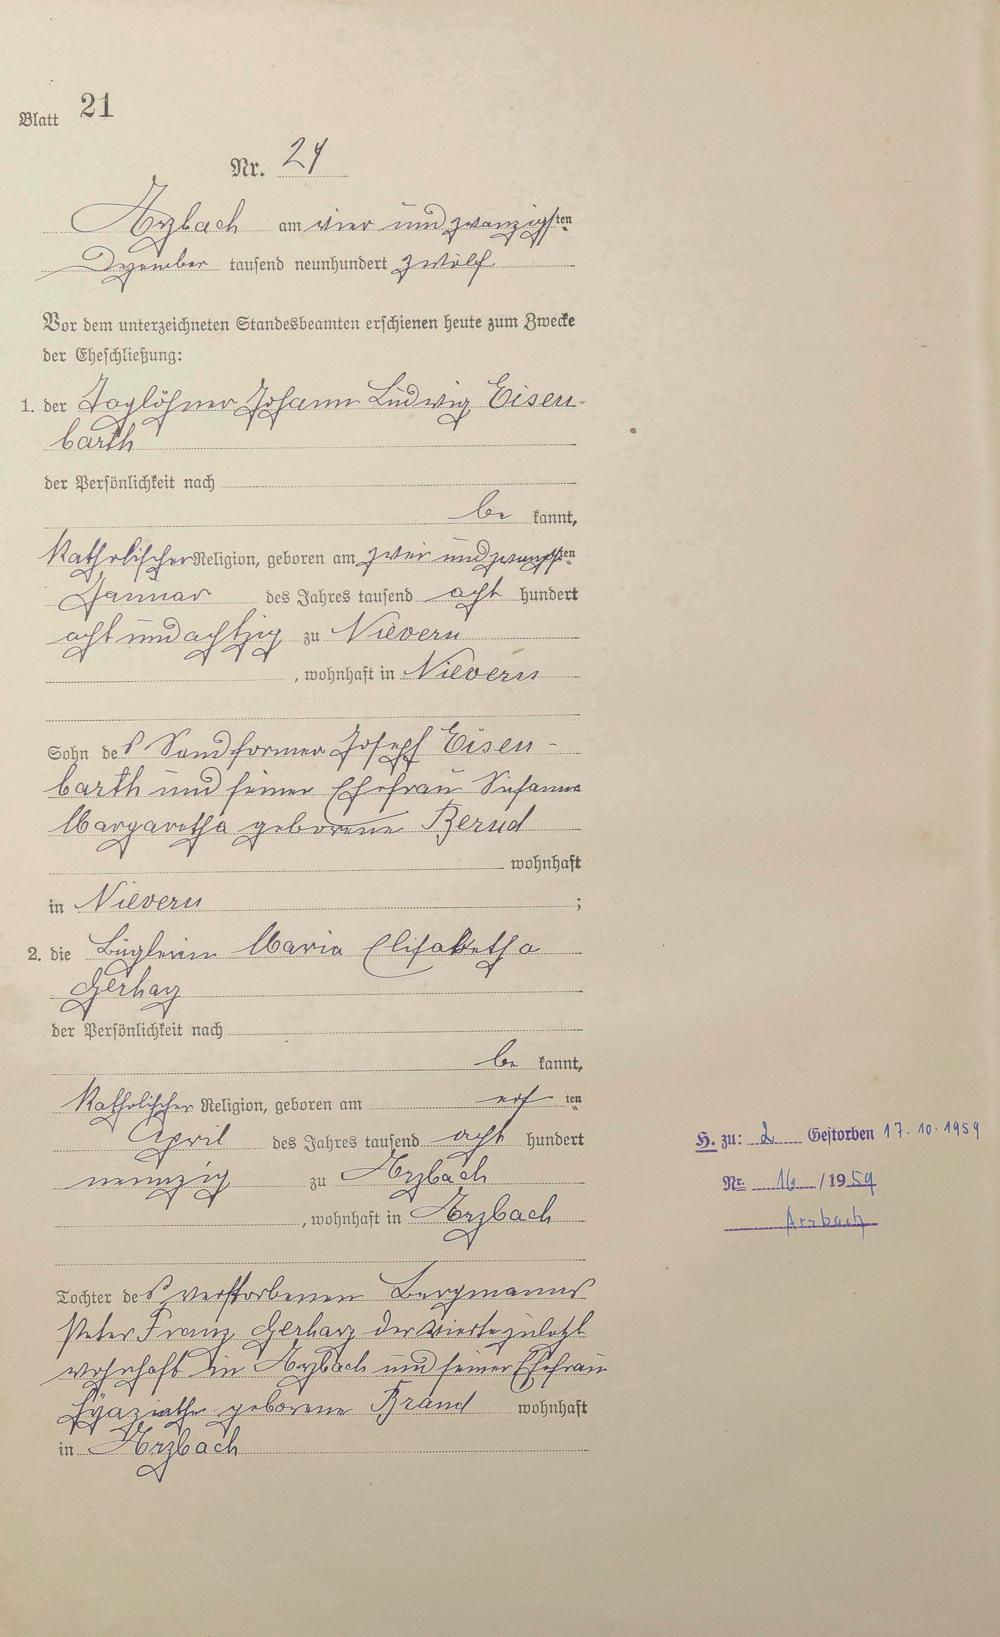 Blatt 21
Nr. 24
Arzbach am vier und zwanzigsten
Dezember tausend neunhundert zwölf
Vor dem unterzeichneten Standesbeamten erschienen heute zum Zwecke
der Eheschließung:
1. der Taglöhner Johann Ludwig Eisen-
barth
der Persönlichkeit nach
be kannt,
katholischer Religion, geboren am zwei und zwanzigsten
Januar des Jahres tausend acht hundert
acht und achtzig zu Nievern
, wohnhaft in Nievern
Sohn des Sandformer Joseph Eisen-
barth und seiner Ehefrau Susanna
Margaretha geborene Bernd
wohnhaft
in Nievern ;
2. die Büglerin Maria Elisabetha
Gerharz
der Persönlichkeit nach
be kannt,
katholischer Religion, geboren am ersten
April des Jahres tausend acht hundert
neunzig zu Arzbach
, wohnhaft in Arzbach
Tochter des verstorbenen Bergmanns
Peter Franz Gerharz der vierte zuletzt
wohnhaft in Arzbach und seiner Ehefrau
geborene Brand wohnhaft
in Arzbach
H. zu: 2 Gestorben 17.10.1959
Nr. 16 /1959
Arzbach